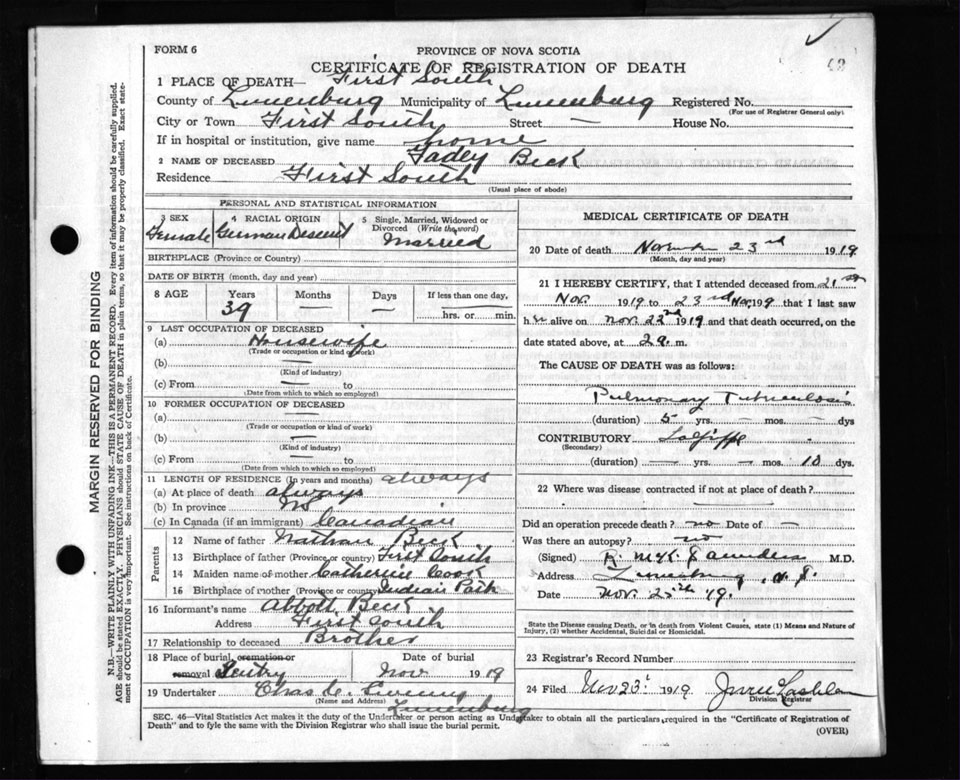 FORM 6
PROVINCE OF NOVA SCOTIA
CERTIFICATE OF REGISTRATION OF DEATH
1 PLACE OF DEATH— First South
County of Lunenburg Municipality of Lunenburg Registered No.
(For use of Registrar General only)
City or Town First South Street — House No.
If in hospital or institution, give name home
2 NAME OF DECEASED Tadey Beck
Residence First South
(Usual place of abode)
PERSONAL AND STATISTICAL INFORMATION
3 SEX Female
4 RACIAL ORIGIN German Descent
5 Single, Married, Widowed or Divorced (Write the word) Married
BIRTHPLACE (Province or Country)
DATE OF BIRTH (month, day and year)
8 AGE Years 39 Months — Days — If less than one day, hrs. or min.
9 LAST OCCUPATION OF DECEASED
(a) Housewife
(Trade or occupation or kind of work)
(b) —
(Kind of industry)
(c) From — to
(Date from which to which so employed)
10 FORMER OCCUPATION OF DECEASED
(a) —
(Trade or occupation or kind of work)
(b) —
(Kind of industry)
(c) From — to
(Date from which to which so employed)
11 LENGTH OF RESIDENCE (In years and months) always
(a) At place of death always
(b) In province NS
(c) In Canada (if an immigrant) Canadian
Parents
12 Name of father Nathan Beck
13 Birthplace of father (Province or country) First South
14 Maiden name of mother Catherine Cook
16 Birthplace of mother (Province or country) Indian Path
16 Informant's name Abbott Beck
Address First South
17 Relationship to deceased Brother
18 Place of burial, cremation or removal Date of burial
Nov 1919
19 Undertaker Chas
(Name and Address) Lunenburg
MEDICAL CERTIFICATE OF DEATH
20 Date of death November 23rd 1919
(Month, day and year)
21 I HEREBY CERTIFY, that I attended deceased from 21st
Nov. 1919 to 23rd Nov, 1919 that I last saw
her alive on Nov. 22nd 1919 and that death occurred, on the
date stated above, at 2 a. m.
The CAUSE OF DEATH was as follows:
Pulmonary Tuberculosis
(duration) 5 yrs. — mos. — dys
CONTRIBUTORY La Grippe
(Secondary)
(duration) — yrs. — mos. 10 dys.
22 Where was disease contracted if not at place of death? —
Did an operation precede death? no Date of —
Was there an autopsy? no
(Signed) R. McK Saunders M.D.
Address Lunenburg, N.S.
Date Nov. 25th 19.
State the Disease causing Death, or in death from Violent Causes, state (1) Means and Nature of
Injury, (2) whether Accidental, Suicidal or Homicidal.
23 Registrar's Record Number
24 Filed Nov 23 1919
Division Registrar
SEC. 46—Vital Statistics Act makes it the duty of the Undertaker or person acting as Undertaker to obtain all the particulars required in the "Certificate of Registration of
Death" and to fyle the same with the Division Registrar who shall issue the burial permit.
(OVER)
MARGIN RESERVED FOR BINDING
N.B.—WRITE PLAINLY WITH UNFADING INK—THIS IS A PERMANENT RECORD. Every item of information should be carefully supplied.
AGE should be stated EXACTLY. PHYSICIANS should STATE CAUSE OF DEATH in plain terms, so that it may be properly classified. Exact state-
ment of OCCUPATION is very important. See instructions on back of Certificate.